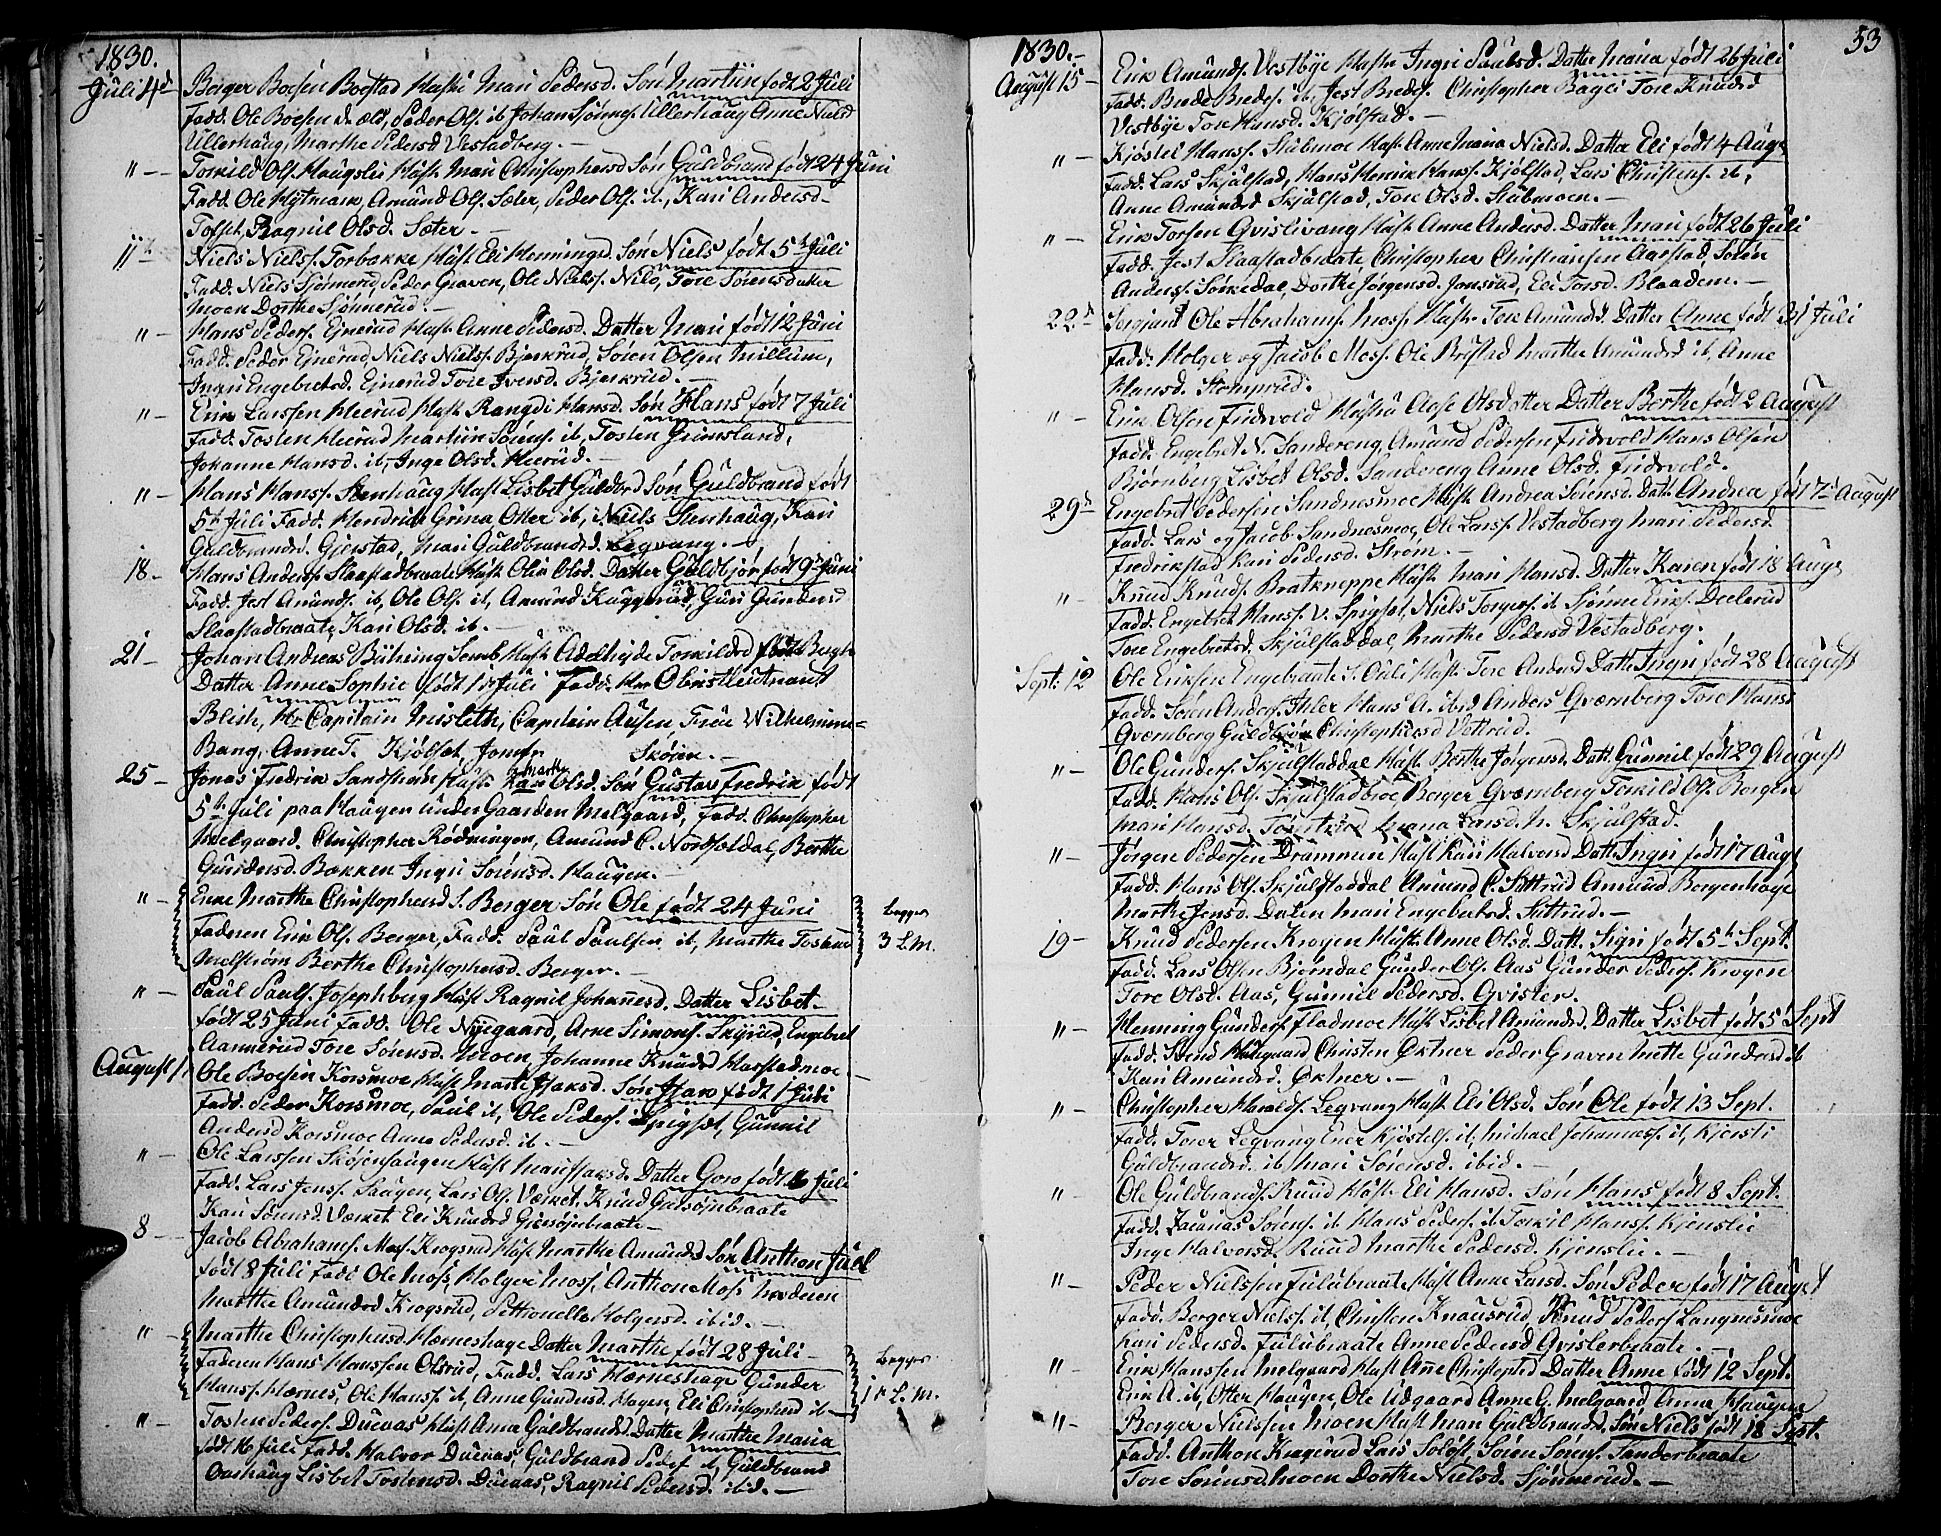 1830.
Juli 4d Borger Boesen Boestad Hust Mari Pedersd. Søn Martiin født 2 Juli
Fadd. Ole Boesen de æld, Peder Ols. ib Johan Sjønnes. Ullerhaug Anne Nielsd
Ullerhaug, Marthe Pedersd Vestadberg. —
" — Torkild Ols. Haugslie Hust Mari Christophersd Søn Guldbrand født 24 Juni
Fadd. Ole Hytmann, Amund Ols. Sæter, Peder Ols. ib, Kari Andersd
Ragnil Olsd. Sæter. —
11te Niels Nielss. Torbakke Hust Eli Henningsd. Søn Niels født 5te Juli
Fadd. Niels Sjønnerud Peder Graven, Ole Nielss. Nilo, Tore Sørensdatter
Moen Dorthe Sjønnerud. —
" Hans Peders. Ejnerud Hust Anne Pedersd. Datter Mari født 12 Juni
Fadd. Peder Ejnerud, Niels Nielss. Bjerkrud, Søren Olsen Millum,
Mari Engebretsd. Ejnerud Tore Iversd. Bjerkrud. —
" — Erik Larssen Heerud Hust. Rangdi Hansd. Søn Hans født 7 Juli
Fadd. Tosten Heerud Martiin Sørens. ib, Tosten Grimsland,
Johanne Hansd. ib, Inge Olsd. Heerud. —
" — Hans Hanss. Stenhaug Hust Lisbet Guldbrd Søn Guldbrand født
5te Juli Fadd. Hendrich Grina Otter ib, Niels Stenhaug, Kari
Guldbrandsd. Gjerstad, Mari Guldbrandsd. Legvang. —
18 — Hans Anders. Slaastadbraate Hust Olia Olsd. Datter Guldbjør født 9de Juni
Fadd. Jest Amunds. ib, Ole Ols. ib, Amund Kuggerud, Guri Gundersd
Slaastadbraate, Kari Olsd. ib. —
21 — Johan Andreas Bühring Semb Hust Adelhejde Torkildsd
Datter Anne Sophie født 1 Juli Fadd. Hr Obristleutnant
Blich, Hr Capitain Misleth, Capitain Ausen Frøe Wilhelmine
Bang, Anne T. Kjølset, Jomfr Skøjen. —
25 — Jonas Fredrik Sandstrøm Hust. Marthe Olsd. Søn Gustav Fredrik født
5te Juli paa Haugen under Gaarden Melgaard, Fadd. Christopher
Melgaard. Christopher Rødningen, Amund C. Nordseldal, Berthe
Gundersd. Bækken Ingri Sørensd. Haugen. —
" — Enke Marthe Christophersd S. Berger Søn Ole født 24 Juni
Faderen Erik Ols. Berger, Fadd. Paul Paulsen ib, Marthe Tostensd
Melstrøm Berthe Christophersd. Berger. —
begges
3 L.M.
" — Paul Pauls. Josephberg Hust Ragnil Johannesd. Datter Lisbet
født 25 Juni Fadd. Ole Nygaard, Arne Simons. Skyrud, Engebret
Aannerud Tore Sørensd. Moen, Johanne Knudsd Harstadmoe. —
August 1. Ole Boesen Korsmoe Hust Marte Isaksd. Søn Isak født 1 Juli
Fadd. Peder Korsmoe, Paul ib, Ole Peders. Spigset, Gunnil
Andersd Korsmoe Anne Pedersd. ib. —
" — Ole Larssen Skøjenhaugen Hust Mari Isaksd. Datter Goro født 6 Juli
Fadd. Lars Jenss. Haugen, Lars Ols. Værket, Knud Gulsøjnbraate
Kari Sørensd. Værket Eli Knudsd Giersøjnbraate —
8 — Jacob Abrahams. Moss. Krogsrud Hust Marthe Amundsd Søn Anthon Juel
født 8 Juli Fadd Ole Moss, Holger Moss, Anthon Moss Moderen
Marthe Amundsd Krogsrud, Pettronelle Holgersd. ibid. —
" — Marthe Christophersd Hærneshage Datter Marthe født 28 Juli —
Faderen Hans Hanssen Olsrud, Fadd. Lars Hærneshage Gunder
Hanss. Hærnes, Ole Hanss. ib, Anne Gundersd. Hagen, Eli Christophersd ib —
begges
1te L.M.
" — Tosten Peders. Duevas Hust Anna Guldbrandsd. Datter Marthe Maria
født 16 Juli Fadd. Halvor Duevas, Guldbrand Peders ib, Guldbrand
Oashaug Lisbet Tostensd. Duevas, Ragnil Pedersd. ibid. —
1830. — 53
August 15 — Erik Amunds. Vestbye Hustr Ingri Paulsd. Datter Maria født 26 Juli
Fadd. Brede Bredes. ib, Jest Bredes. Christopher Bages Tore Knudsd
Vestbye Tore Hansd. Kjølstad. —
" — Kjøstel Hanss. Stubmoe Hust. Anne Maria Nielsd. Datter Eli født 4 Augs
Fadd. Lars Skjulstad, Hans Henrik Hanss. Kjølstad, Lars Christens. ib,
Anne Amundsd Skjulstad, Tore Olsd. Stubmoen. —
" — Erik Torsen Qvislivang Hust Anne Andersd. Datter Mari født 26 Juli
Fadd. Jest Slaastadbraate, Christopher Christiansen Aarstad, Søren
Anderss. Sørkedal, Dorthe Jørgensd. Jonsrud, Eli Torsd. Blaadem. —
22de Sergjant Ole Abrahams. Moss. Hustr. Tore Amundsd. Datter Anne født 21 Juli
Fadd. Holger og Jacob Moss. Ole Rustad Marthe Amundsd ib, Anne
Hansd. Stomprud.
" — Erik Olsen Fridsvold Hustru Aase Olsdatter Datter Berthe født 2 August
Fadd. Engebret N. Sandereng, Amund Pedersen Fridsvold Hans Olsen
Bjørnberg Lisbet Olsd. Sandereng Anne Olsd. Fridsvold.
29de Engebret Pedersen Sandnesmoe Hust Andrea Sørensd. Datt. Andrea født 7de August
Fadd. Lars og Jacob Sandnesmoe, Ole Larss. Vestadberg Mari Pedersd.
Fredrikstad Kari Pedersd. Strøm. —
" — Knud Knuds. Bratkneppe Hust Mari Hansd. Datter Karen født 18 Augs
Fadd. Engebret Hanss. V. Spigset, Niels Torgers. ib Sjønne Eriks. Deelerud
Tore Engebretsd. Skjulstaddal, Marthe Pedersd Vestadberg.
Sept. 12 Ole Eriksen Engebraate Hust. Tore Andersd Datt. Ingri født 28 August
Fadd. Søren Anders. Ihler Hans A. ibid Anders Qvæmberg Tore Hansd
Qvæmberg Guldbjør Christophersd Vetterud.
" — Ole Gunders. Skjulstaddal Hust. Berthe Jørgensd. Datt. Gunnil født 29 August
Fadd. Hans Ols. Skjulstadbroe Borger Qvæmberg Torkild Ols. Borgen
Mari Hansd. Larsd. N. Skjulstad.
" — Jørgen Pedersen Drammen Hust Kari Halvorsd Datt. Ingri født 17 Augt
Fadd. Hans Ols. Skjulstaddal Amund C. Sittrud Amund Bergenhage
Marthe Jensd. Dalen Mari Engebretsd. Sittrud. —
19 — Knud Pedersen Krogen Hust. Anne Olsd. Datt. Sigri født 5te Sept.
Fadd. Lars Olsen Bjørndal Gunder Ols. Aas Gunder Peders. Krogen
Tore Olsd. Aas, Gunnil Pedersd. Qvisler.
" — Henning Gunders. Flademoe Hust Lisbet Amundsd. Datter Lisbet født 5te Sept
Fadd. Svend Haugaard Christen Øktner Peder Graven Mette Gundersd ib
Kari Amundsd. Øktner. —
" — Christopher Haralds. Legvang Hust Eli Olsd. Søn Ole født 13 Sept.
Fadd. Torer Legvang Ener Kjøstels. ib, Michael Johanness. ib, Kjersti
Guldbrandsd. ib, Mari Sørensd. ibid. —
" — Ole Guldbrands. Ruud Hust. Eli Hansd. Søn Hans født 8 Sept.
Fadd. Zacarias Sørens. ib Hans Peders. ib Torkil Hanss. Kjenslie
Inge Halvorsd. Ruud Marthe Pedersd. Kjenslie. —
" — Peder Nielssen Fulubraate Hust Anne Larsd. Søn Peder født 17 August
Fadd. Berger Nielss. ib, Christen Knausrud, Knud Peders Langnesmoe
Kari Pedersd. Fulubraate Anne Pedersd Qvislerbraate. —
" Erik Hanssen Melgaard Hust Anne Christophsd Datter Anne født 12 Sept.
Erik A. ib, Otter Haugen, Ole Udgaard Anne G. Melgaard Anna Haugen
" — Berger Nielssen Moen Hust Mari Guldbrandsd. Søn Niels født 18 Sept.
Fadd. Anthon Kragerud Lars Soløst. Søren Sørens. Sanderbraate
Tore Sørensd. Moen Dorthe Nielsd. Sjønnerud. —